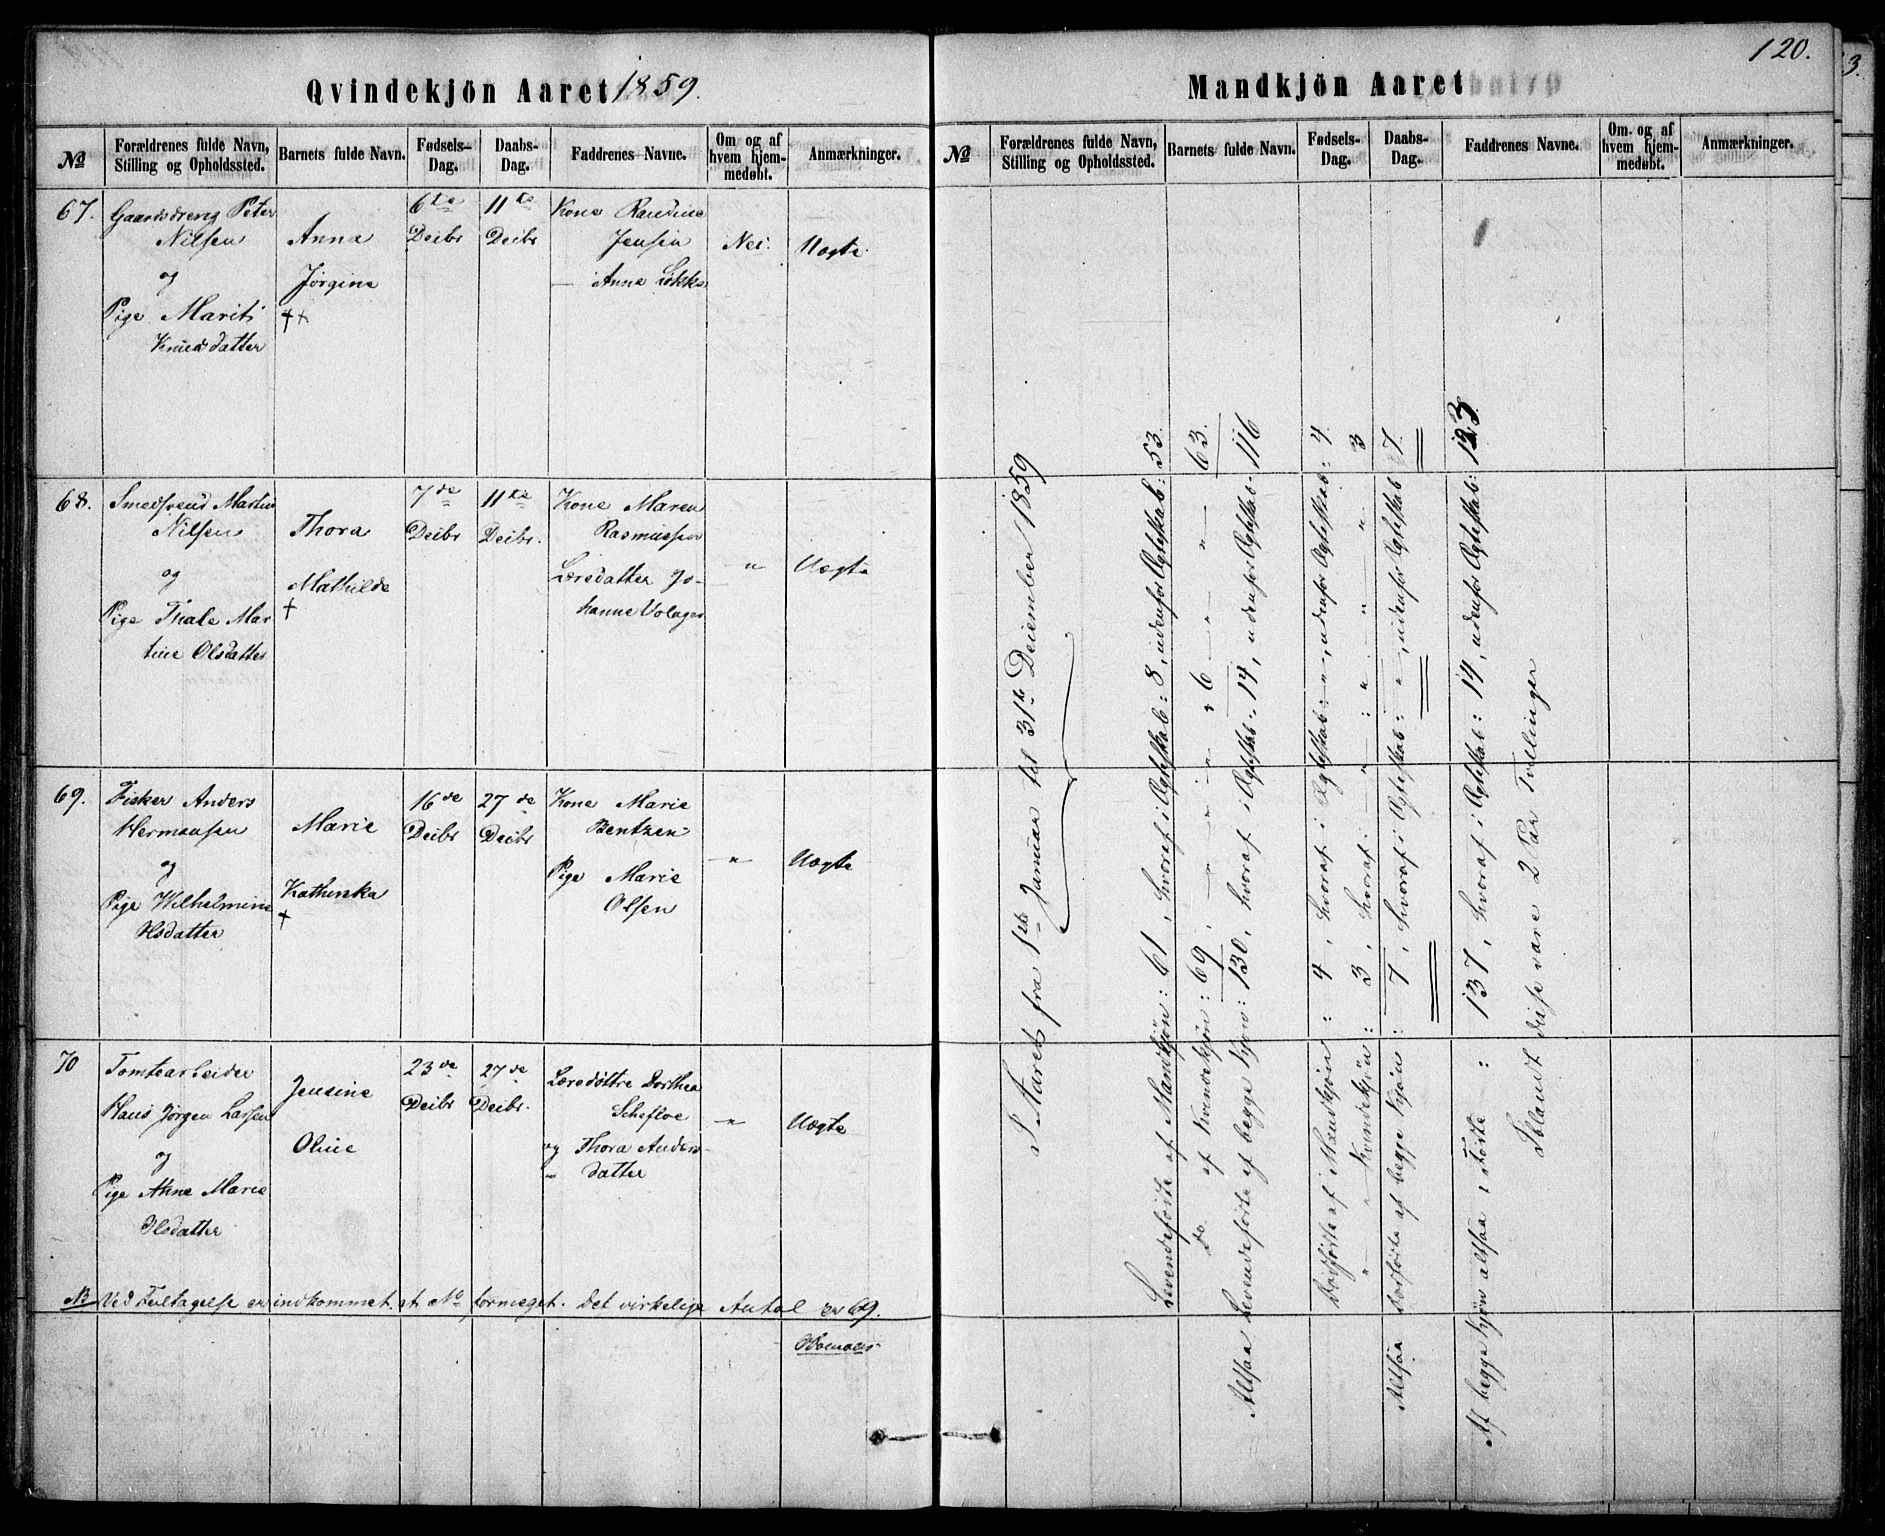 Qvindekjön Aaret 1859.
№
Forældrenes fulde Navn, Stilling og Opholdssted.
Barnets fulde Navn.
Fødsels-Dag.
Daabs-Dag.
Faddrenes Navne.
Om og af hvem hjem-medøbt.
Anmærkninger.
67.
Gaardsdreng Peter
Nilsen
og
Pige Marit
Knudsdatter
Anna
Jørgine
6te
Decbr
11te
Decbr
Kone Randine
Jensen
— Anna Løkke
Nei.
Uægte
68.
Smedsvend Martin
Nilsen
og
Pige Thale Mar
tine Olsdatter
Thora
Mathilde
7de
Decbr
11te
Decbr.
Kone Maren
Rasmussen
Læredatter Jo-
hanne
"
Uægte
69.
Fisker Anders
Hermansen
og
Pige Wilhelmine
Olsdatter
Marie
Kathinka
16de
Decbr
27de
Decbr
Kone Marie
Bentzen
Pige Marie
Olsen
"
Uægte
70
Tomtearbeider
Hans Jørgen Larsen
og
Pige Anne Marie
Olsdatter
Jensine
Oline
23de
Decbr
27de
Decbr.
Læredøttre Dorthea
Schefloe
og Thora Anders-
datter
"
Uægte
NB Ved Feiltagelse er indkommet et No formeget. Det virkelige Antal er 69.
120.
Mandkjön Aaret
№
Forældrenes fulde Navn, Stilling og Opholdssted.
Barnets fulde Navn.
Fødsels-Dag.
Daabs-Dag.
Faddrenes Navne.
Om og af hvem hjem-medøbt.
Anmærkninger.
I Aaret fra 1ste Januar til 31te December 1859
Levendefødte af Mandkjøn: 61, hvoraf i Ægteskab: 8, udenfor Ægteskab: 53.
Do. af Kvindekjøn: 69, — " — " — " 6 — " — " — 63.
Altsaa Levendefødte af begge Kjøn: 130, hvoraf i Ægteskab: 14, udenfor Ægteskab: 116
Dødfødte af Mandkjøn: 4, hvoraf i Ægteskab: ", udenfor Ægteskab: 4
" — " Kvindekjøn: 3, hvoraf: — " — : " — " — " — 3
Altsaa Dødfødte af begge Kjøn: 7, hvoraf i Ægteskab: ", udenfor Ægteskab 7.
Af begge Kjøn altsaa fødte: 137, hvoraf i Ægteskab: 14, udenfor Ægteskab: 123
Iblandt disse vare 2 Par Tvillinger